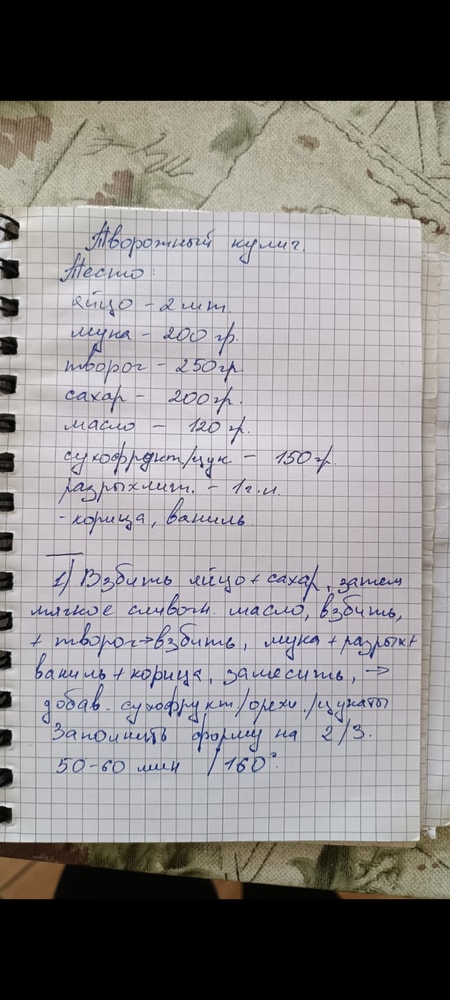 Творожный кулич.
Тесто:
яйцо - 2 шт.
мука - 200 гр.
творог - 250 гр
сахар - 200 гр.
масло - 120 гр.
сухофрукт/цук. - 150 гр.
разрыхлит. - 1 ч.л.
- корица, ваниль.
1) Взбить яйцо + сахар, затем
мягкое сливочн. масло, взбить,
+ творог → взбить, мука + разрых +
ваниль + корица, замесить, →
добав. сухофрукт/орехи./цукаты
Заполнить форму на 2/3.
50-60 мин / 160°.